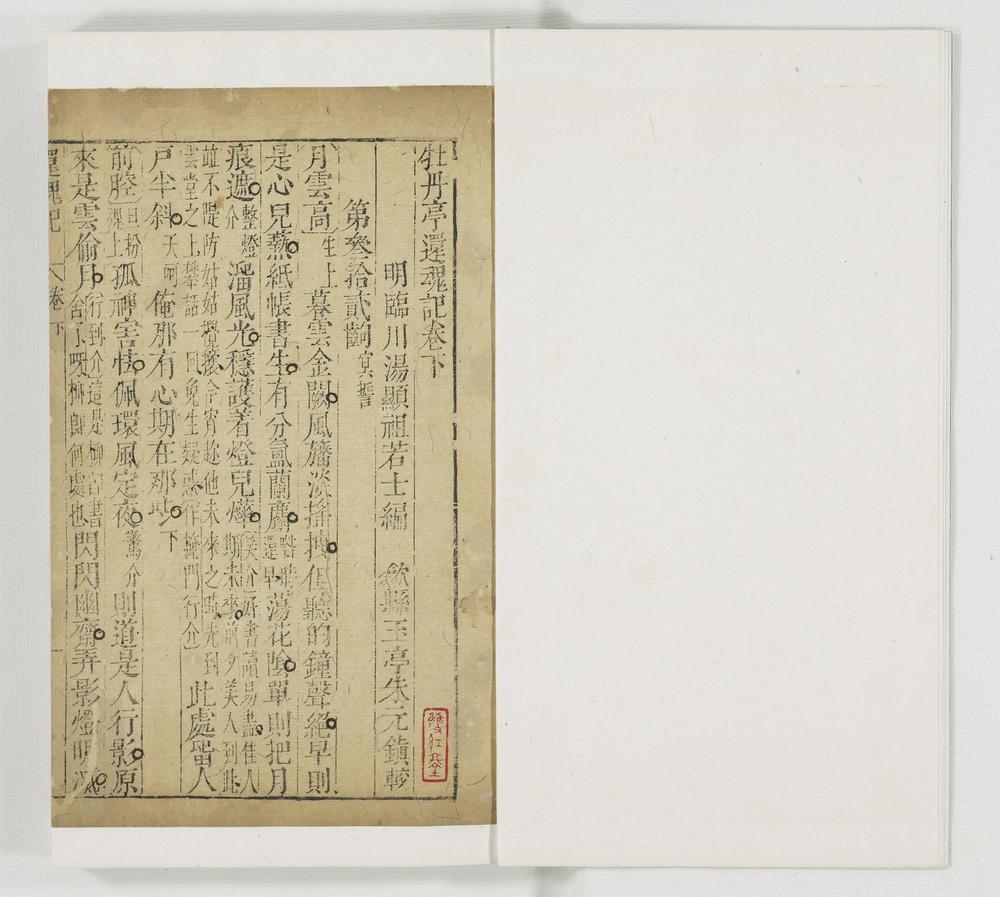 牡丹亭還魂記卷下
明臨川湯顯祖若士編 歙縣玉亭朱元鎮較
第叁拾貳齣冥誓
月雲高生上暮雲金闕風旛淡搖拽但聽的鐘聲絕早則
是心兒爇紙帳書生有分氳蘭麝噤時還早蕩花陰單則把月
痕遮整燈介溜風光穩護着燈兒燁笑介好書讀易盡佳人期未來前夕美人到此
並不隄防姑姑攪攘今宵趁他未來之時先到雲堂之上攀話一回免生疑惑作掩門行介此處留人
戶半斜天呵俺那有心期在那些下
前腔旦魂上孤神害怯佩環風定夜驚介則道是人行影原
來是雲偷月行到介這是柳郎書舍了呀柳郎何處也閃閃幽齋弄影燈明滅
還魂記 卷下